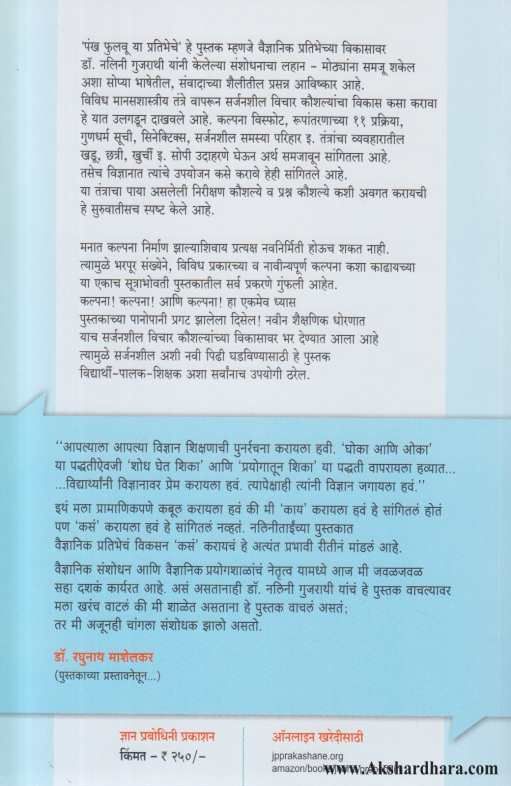 'पंख फुलवू या प्रतिभेचे' हे पुस्तक म्हणजे वैज्ञानिक प्रतिभेच्या विकासावर
डॉ. नलिनी गुजराथी यांनी केलेल्या संशोधनाचा लहान - मोठ्यांना समजू शकेल
अशा सोप्या भाषेतील, संवादाच्या शैलीतील प्रसन्न आविष्कार आहे.
विविध मानसशास्त्रीय तंत्रे वापरून सर्जनशील विचार कौशल्यांचा विकास कसा करावा
हे यात उलगडून दाखवले आहे. कल्पना विस्फोट, रूपांतरणाच्या ११ प्रक्रिया,
गुणधर्म सूची, सिनेक्टिक्स, सर्जनशील समस्या परिहार इ. तंत्रांचा व्यवहारातील
खडू, छत्री, खुर्ची इ. सोपी उदाहरणे घेऊन अर्थ समजावून सांगितला आहे.
तसेच विज्ञानात त्यांचे उपयोजन कसे करावे हेही सांगितले आहे.
या तंत्राचा पाया असलेली निरीक्षण कौशल्ये व प्रश्न कौशल्ये कशी अवगत करायची
हे सुरुवातीसच स्पष्ट केले आहे.
मनात कल्पना निर्माण झाल्याशिवाय प्रत्यक्ष नवनिर्मिती होऊच शकत नाही.
त्यामुळे भरपूर संख्येने, विविध प्रकारच्या व नावीन्यपूर्ण कल्पना कशा काढायच्या
या एकाच सूत्राभोवती पुस्तकातील सर्व प्रकरणे गुंफली आहेत.
कल्पना! कल्पना! आणि कल्पना! हा एकमेव ध्यास
पुस्तकाच्या पानोपानी प्रगट झालेला दिसेल! नवीन शैक्षणिक धोरणात
याच सर्जनशील विचार कौशल्यांच्या विकासावर भर देण्यात आला आहे
त्यामुळे सर्जनशील अशी नवी पिढी घडविण्यासाठी हे पुस्तक
विद्यार्थी-पालक-शिक्षक अशा सर्वांनाच उपयोगी ठरेल.
"आपल्याला आपल्या विज्ञान शिक्षणाची पुनर्रचना करायला हवी. 'घोका आणि ओका'
या पद्धतीऐवजी 'शोध घेत शिका' आणि 'प्रयोगातून शिका' या पद्धती वापरायला हव्यात...
...विद्यार्थ्यांनी विज्ञानावर प्रेम करायला हवं. त्यापेक्षाही त्यांनी विज्ञान जगायला हवं."
इयं मला प्रामाणिकपणे कबूल करायला हवं की मी 'काय' करायला हवं हे सांगितलं होतं
पण 'कसं' करायला हवं हे सांगितलं नव्हतं. नलिनीताईंच्या पुस्तकात
वैज्ञानिक प्रतिभेचं विकसन 'कसं' करायचं हे अत्यंत प्रभावी रीतीनं मांडलं आहे.
वैज्ञानिक संशोधन आणि वैज्ञानिक प्रयोगशाळांचं नेतृत्व यामध्ये आज मी जवळजवळ
सहा दशकं कार्यरत आहे. असं असतानाही डॉ. नलिनी गुजराथी यांचं हे पुस्तक वाचल्यावर
मला खरंच वाटलं की मी शाळेत असताना हे पुस्तक वाचलं असतं;
तर मी अजूनही चांगला संशोधक झालो असतो.
डॉ. रघुनाथ माशेलकर
(पुस्तकाच्या प्रस्तावनेतून...)
ज्ञान प्रबोधिनी प्रकाशन
किंमत - ₹ २५०/-
ऑनलाइन खरेदीसाठी
jpprakashane.org
amazon/books/
www.Akshardhara.com